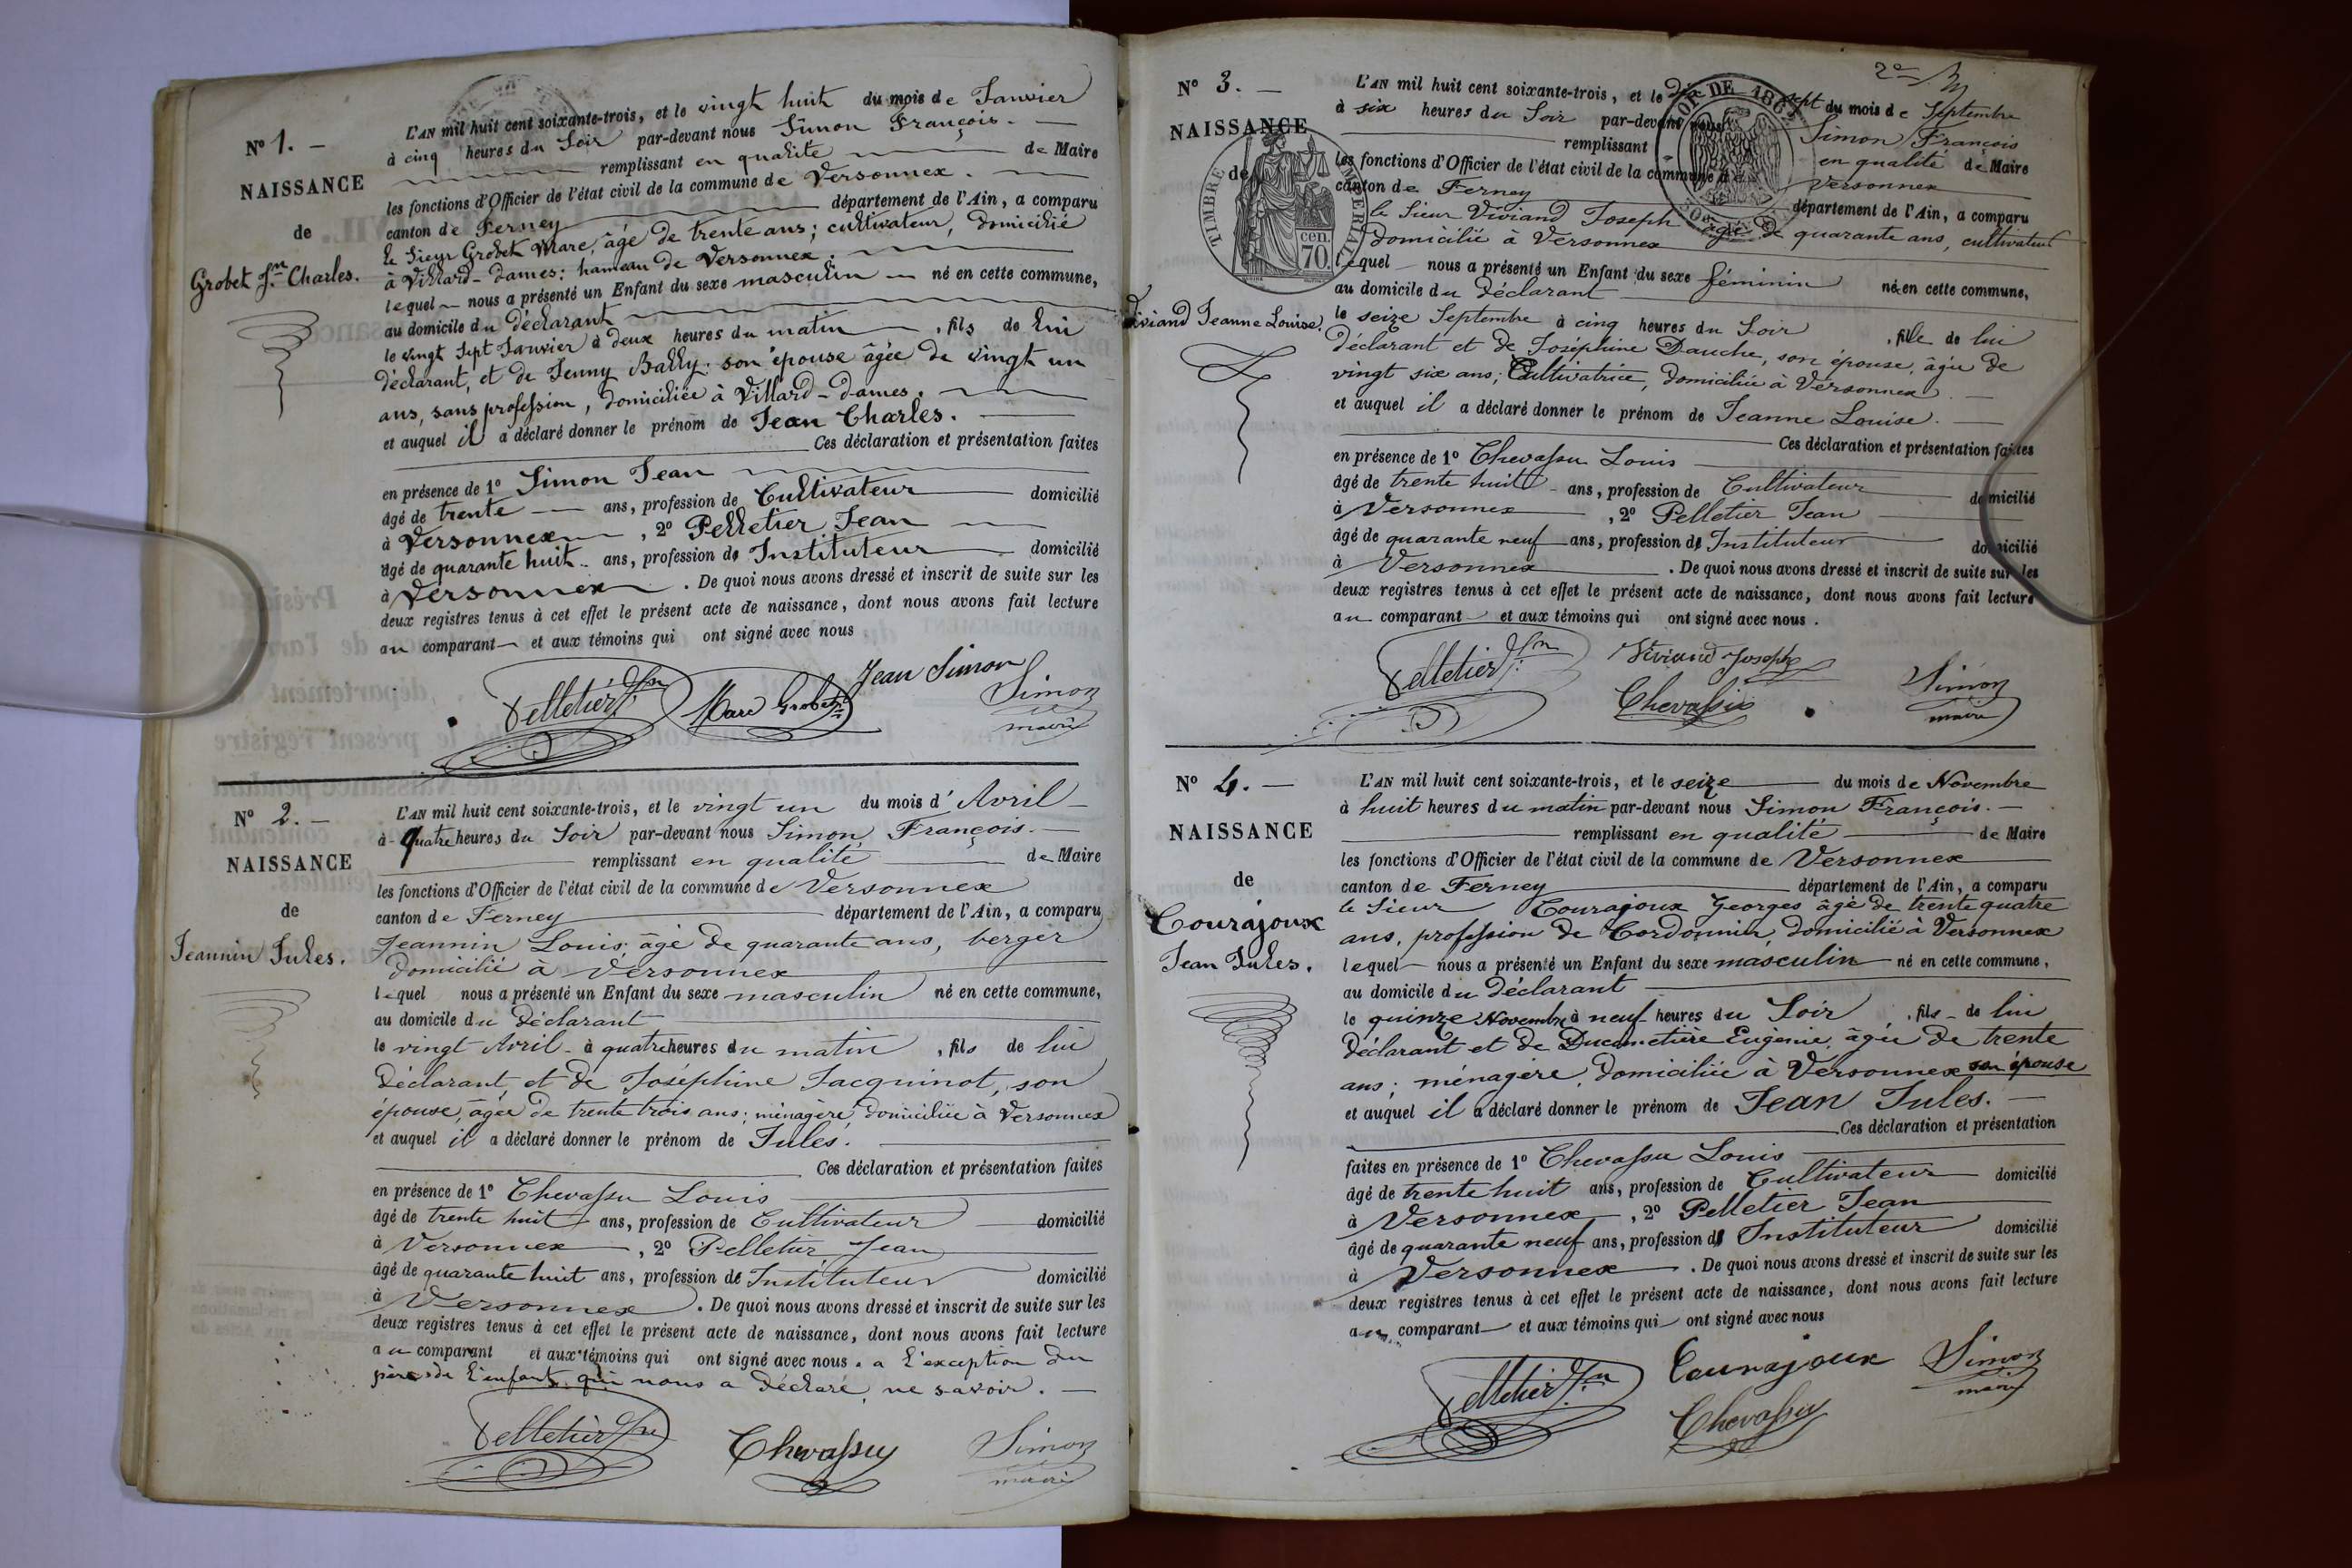 Nº 1. —
NAISSANCE
de
Grobet Jn Charles.
L'AN mil huit cent soixante-trois, et le vingt huit du mois de Janvier
à cinq heures du Soir par-devant nous Simon François. —
remplissant en qualité de Maire
les fonctions d'Officier de l'état civil de la commune de Versonnex.
canton de Ferney département de l'Ain, a comparu
le Sieur Grobet Marc, âgé de trente ans; cultivateur, domicilié
à Villard-Dames; hameau de Versonnex.
lequel nous a présenté un Enfant du sexe masculin né en cette commune,
au domicile du déclarant
le vingt Sept Janvier à deux heures du matin , fils de lui
déclarant, et de Jenny Bally, son épouse âgée de vingt un
ans, sans profession, domiciliée à Villard-Dames.
et auquel il a déclaré donner le prénom de Jean Charles.
Ces déclaration et présentation faites
en présence de 1º Simon Jean
âgé de trente ans, profession de Cultivateur domicilié
à Versonnex , 2º Pelletier Jean
âgé de quarante huit ans, profession de Instituteur domicilié
à Versonnex . De quoi nous avons dressé et inscrit de suite sur les
deux registres tenus à cet effet le présent acte de naissance, dont nous avons fait lecture
au comparant et aux témoins qui ont signé avec nous
Pelletier Jn Marc Grobet Jean Simon Simon
maire
Nº 2. —
NAISSANCE
de
Jeannin Jules.
L'AN mil huit cent soixante-trois, et le vingt un du mois d' Avril
à quatre heures du Soir par-devant nous Simon François. —
remplissant en qualité de Maire
les fonctions d'Officier de l'état civil de la commune de Versonnex
canton de Ferney département de l'Ain, a comparu
Jeannin Louis âgé de quarante ans, berger
domicilié à Versonnex
lequel nous a présenté un Enfant du sexe masculin né en cette commune,
au domicile du Déclarant
le vingt Avril à quatre heures du matin , fils de lui
Déclarant, et de Joséphine Jacquinot, son
épouse, âgée de trente trois ans; ménagère, domiciliée à Versonnex
et auquel il a déclaré donner le prénom de Jules.
Ces déclaration et présentation faites
en présence de 1º Chevassu Louis
âgé de trente huit ans, profession de Cultivateur domicilié
à Versonnex , 2º Pelletier Jean
âgé de quarante huit ans, profession de Instituteur domicilié
à Versonnex . De quoi nous avons dressé et inscrit de suite sur les
deux registres tenus à cet effet le présent acte de naissance, dont nous avons fait lecture
au comparant et aux témoins qui ont signé avec nous. a l'exception du
père de l'enfant qui nous a déclaré ne savoir. —
Pelletier Jn Chevassu Simon
maire
2e
Nº 3. —
NAISSANCE
de
Viviand Jeanne Louise.
TIMBRE IMPERIAL
cen.
70.
OR DE 186
L'AN mil huit cent soixante-trois, et le dix sept du mois de Septembre
à six heures du Soir par-devant nous Simon François
remplissant en qualité de Maire
les fonctions d'Officier de l'état civil de la commune de Versonnex
canton de Ferney département de l'Ain, a comparu
le Sieur Viviand Joseph âgé de quarante ans, cultivateur
domicilié à Versonnex
lequel nous a présenté un Enfant du sexe féminin née en cette commune,
au domicile du déclarant
le seize Septembre à cinq heures du Soir , fille de lui
déclarant et de Joséphine Dauche, son épouse, âgée de
vingt six ans; Cultivatrice, domiciliée à Versonnex. —
et auquel il a déclaré donner le prénom de Jeanne Louise. —
Ces déclaration et présentation faites
en présence de 1º Chevassu Louis
âgé de trente huit ans, profession de Cultivateur domicilié
à Versonnex , 2º Pelletier Jean
âgé de quarante neuf ans, profession de Instituteur domicilié
à Versonnex . De quoi nous avons dressé et inscrit de suite sur les
deux registres tenus à cet effet le présent acte de naissance, dont nous avons fait lecture
au comparant et aux témoins qui ont signé avec nous.
Pelletier Jn Viviand Joseph Simon
Chevassu maire
Nº 4. —
NAISSANCE
de
Courajoux
Jean Jules.
L'AN mil huit cent soixante-trois, et le seize du mois de Novembre
à huit heures du matin par-devant nous Simon François. —
remplissant en qualité de Maire
les fonctions d'Officier de l'état civil de la commune de Versonnex
canton de Ferney département de l'Ain, a comparu
le Sieur Courajoux Georges âgé de trente quatre
ans, profession de Cordonnier, domicilié à Versonnex
lequel nous a présenté un Enfant du sexe masculin né en cette commune,
au domicile du Déclarant
le quinze Novembre à neuf heures du Soir , fils de lui
Déclarant et de Ducimetière Eugénie, âgée de trente
ans; ménagère, domiciliée à Versonnex son épouse
et auquel il a déclaré donner le prénom de Jean Jules. —
Ces déclaration et présentation
faites en présence de 1º Chevassu Louis
âgé de trente huit ans, profession de Cultivateur domicilié
à Versonnex , 2º Pelletier Jean
âgé de quarante neuf ans, profession de Instituteur domicilié
à Versonnex . De quoi nous avons dressé et inscrit de suite sur les
deux registres tenus à cet effet le présent acte de naissance, dont nous avons fait lecture
au comparant et aux témoins qui ont signé avec nous
Pelletier Jn Courajoux Simon
Chevassu maire